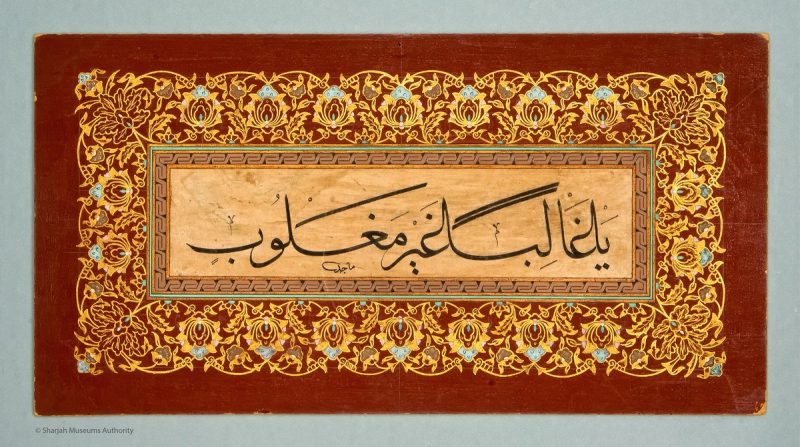 يَا غَالِبًا غَيْرَ مَغْلُوبٍ
ماجد
© Sharjah Museums Authority